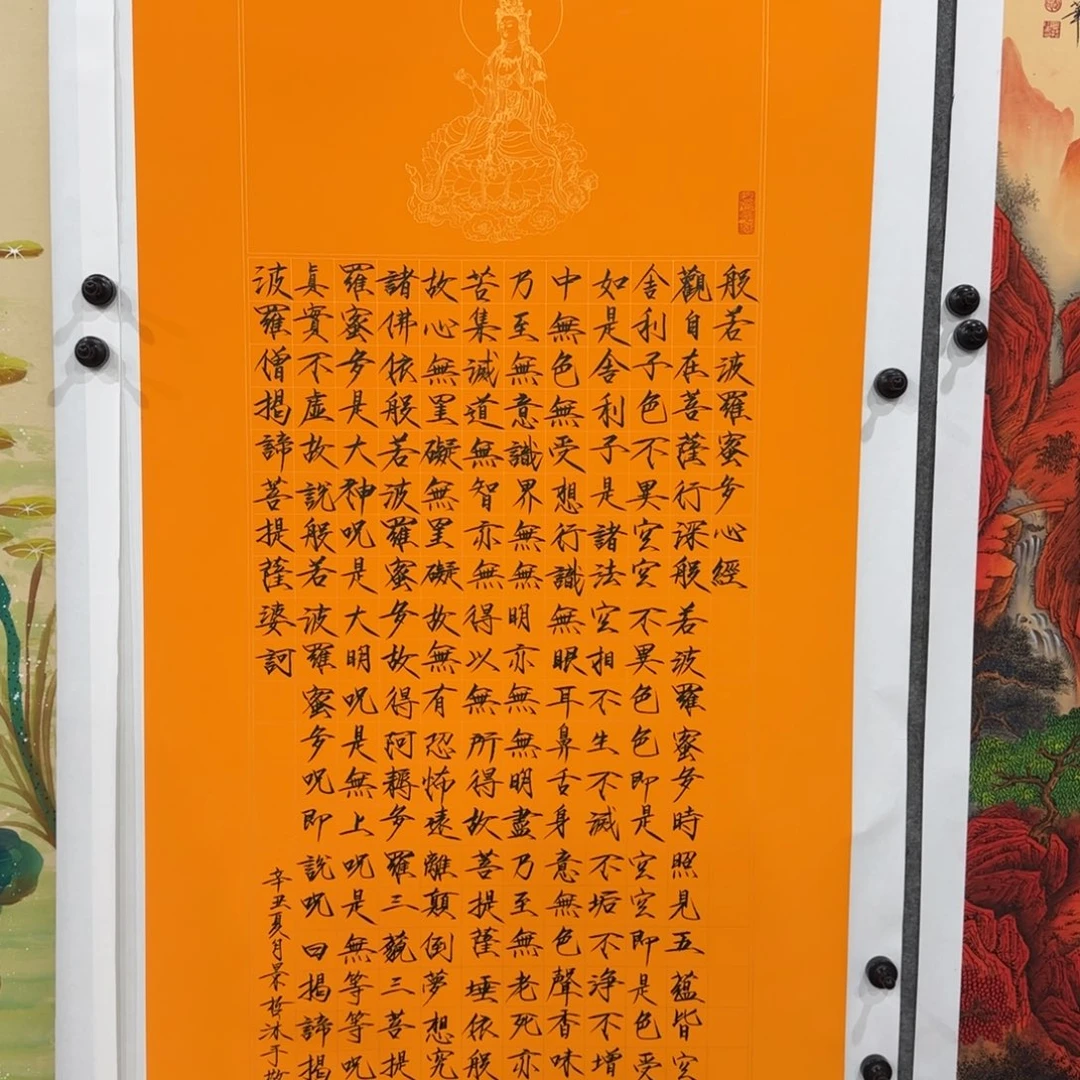 般若波羅蜜多心經
觀自在菩薩行深般若波羅蜜多時照見五蘊皆空
舍利子色不異空空不異色色即是空空即是色受
如是舍利子是諸法空相不生不滅不垢不淨不增
中無色無受想行識無眼耳鼻舌身意無色聲香味
乃至無意識界無無明亦無無明盡乃至無老死亦
苦集滅道無智亦無得以無所得故菩提薩埵依般
故心無罣礙無罣礙故無有恐怖遠離顛倒夢想究
諸佛依般若波羅蜜多故得阿耨多羅三藐三菩提
羅蜜多是大神呪是大明呪是無上呪是無等等呪
眞實不虛故說般若波羅蜜多呪即說呪曰揭諦揭
波羅僧揭諦菩提薩婆訶
辛丑夏月